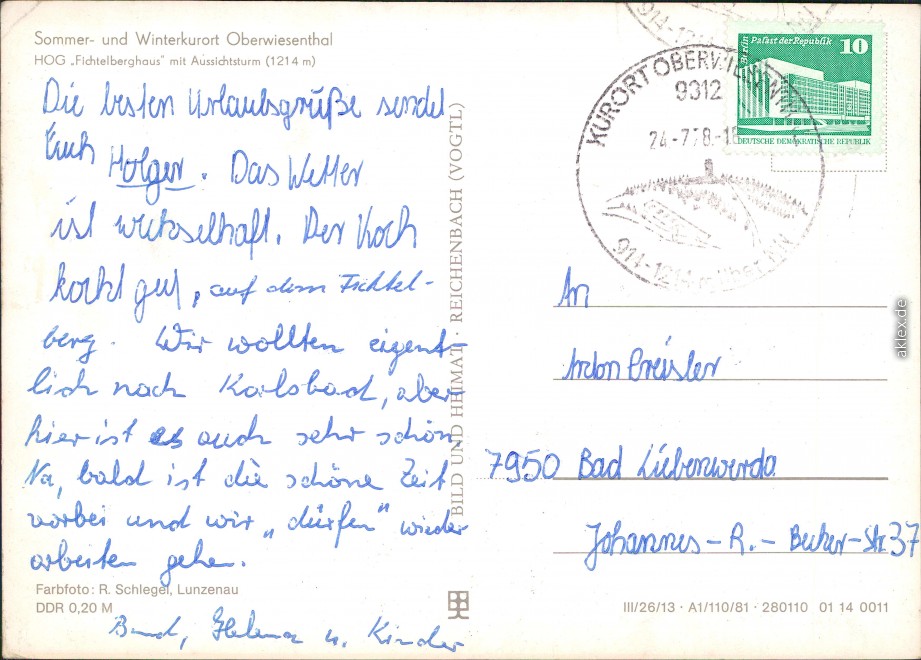 Sommer- und Winterkurort Oberwiesenthal
HOG „Fichtelberghaus" mit Aussichtsturm (1214 m)
Die besten Urlaubsgrüße sendet
Euch
Holger. Das Wetter
ist wechselhaft. Der Koch
kocht gut, auf dem Fichtel-
berg. Wir wollten eigent-
lich nach Karlsbad, aber
hier ist es auch sehr schön
Na, bald ist die schöne Zeit
vorbei und wir „dürfen" wieder
arbeiten gehen.
Farbfoto: R. Schlegel, Lunzenau
DDR 0,20 M
Helena u. Kinder
BILD UND HEIMAT · REICHENBACH (VOGTL)
914-121
KURORT OBERWIESENTHAL
9312
24-7.78.-18
914-1214 m über NN
Berlin Palast der Republik 10
DEUTSCHE DEMOKRATISCHE REPUBLIK
An
Anton Preisler
7950 Bad Liebenwerda
Johannes-R.-Becher-Str 37
III/26/13 · A1/110/81 · 280110 01 14 0011
aklex.de